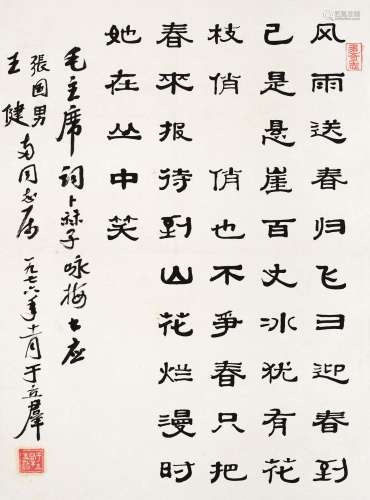 风雨送春归飞彐迎春到
己是悬崖百丈冰犹有花
枝俏 俏也不爭春只把
春來报待到山花烂漫时
她在丛中笑
毛主席词卜祘子咏梅 书应
張国男
王健 两同志属 一九七六年十一月于立羣